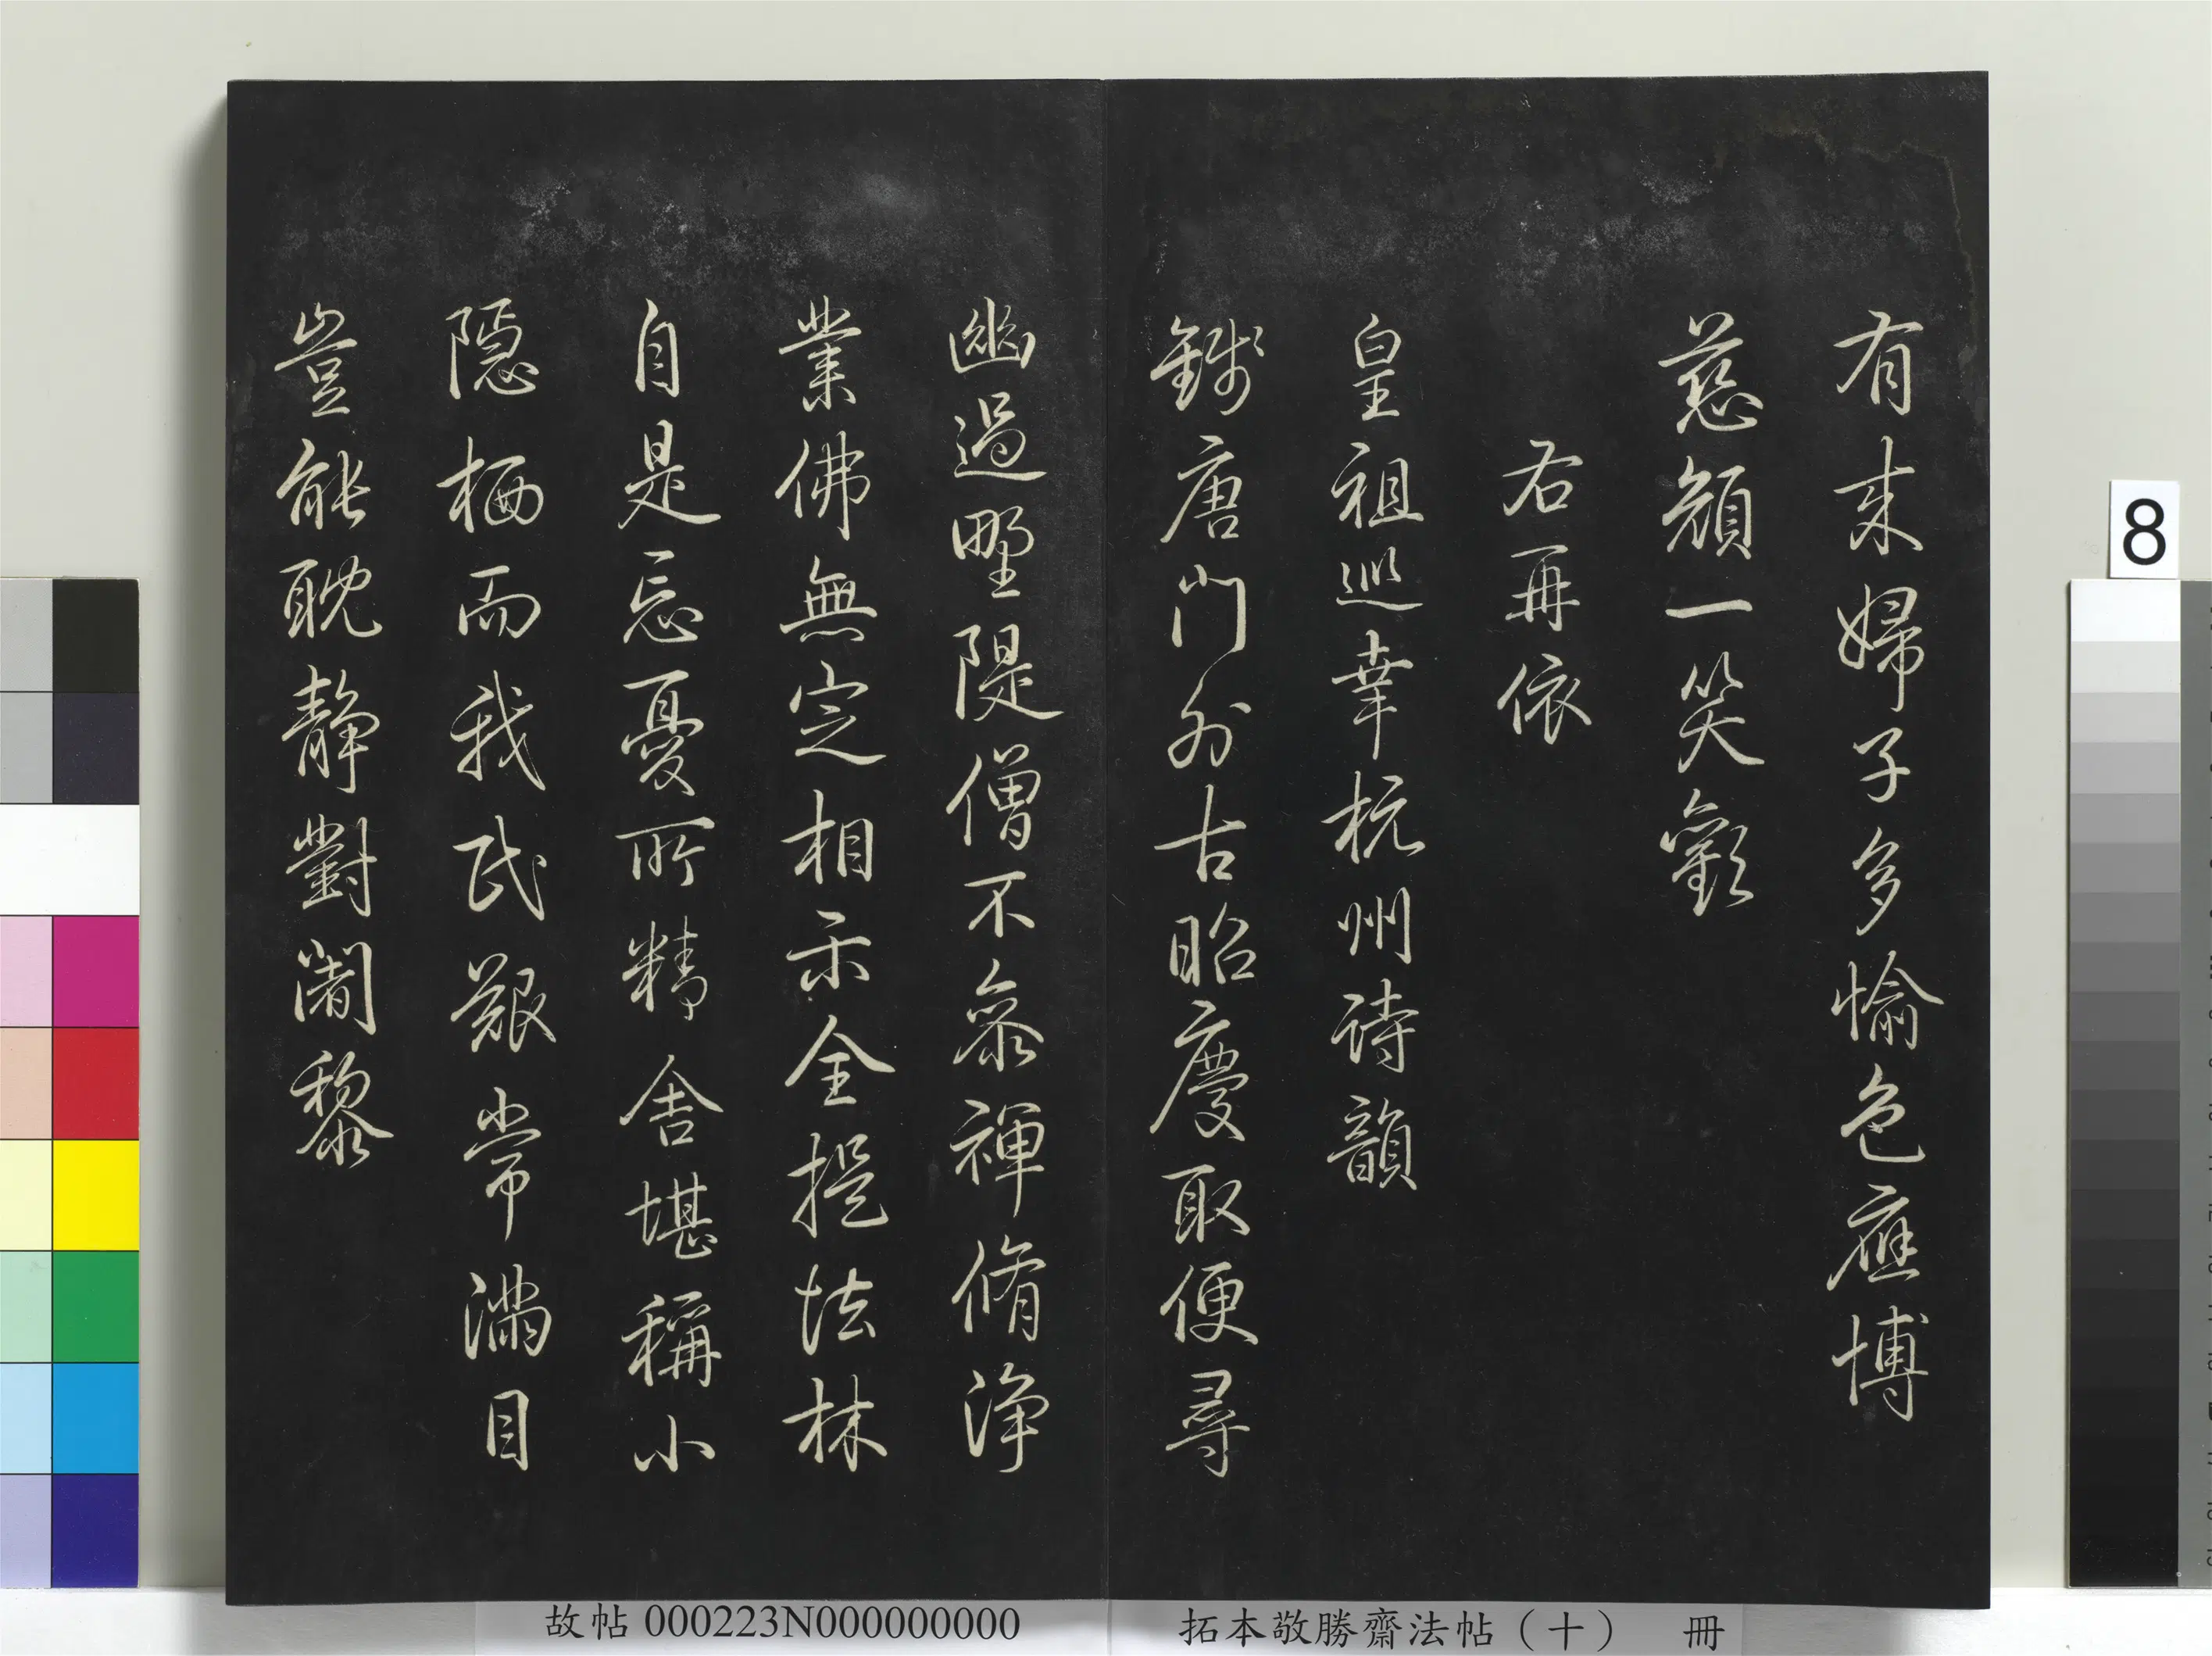 有來婦子多愉色應博
慈顏一笑歡
右再依
皇祖巡幸杭州詩韻
錢唐門外古昭慶取便尋
幽過野隄僧不參禪脩淨
業佛無定相示全提法林
自是忘憂所精舍堪稱小
隱栖而我民艱常滿目
豈能耽靜對闍黎
8
故帖 000223N000000000
拓本敬勝齋法帖（十） 冊